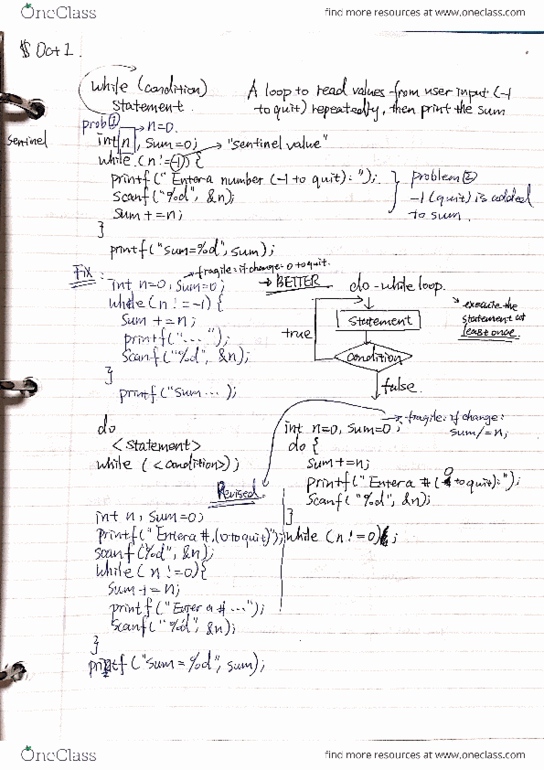 OneClass
find more resources at www.oneclass.com
Oct 1.
while (condition)
statement
A loop to read values from user input (-1
to quit) repeatedly, then print the sum
prob ①
n=0.
sentinel
int n, sum=0;
"sentinel value"
while (n != -1) {
printf(" Enter a number (-1 to quit): ");
scanf("%d", &n);
sum += n;
}
problem ②
-1 (quit) is added
to sum.
printf("sum=%d", sum);
Fix :
fragile: if change: 0 to quit.
int n=0, sum=0;
→ BETTER
while(n != -1) {
sum += n;
printf("... ");
scanf("%d", &n);
}
printf("sum... );
do-while loop.
statement
true
condition
false.
execute the
statement at
least once.
do
<statement>
while (<condition>);
fragile: if change:
sum/=n;
int n=0, sum=0;
do {
sum+=n;
printf("Enter a # (0 to quit): ");
scanf("%d", &n);
}
while (n != 0);
Revised
int n, sum=0;
printf("Enter a #,(0 to quit)");
scanf("%d", &n);
while (n != 0){
sum += n;
printf("Enter a # ...");
scanf("%d", &n);
}
printf("sum=%d", sum);
OneClass
find more resources at www.oneclass.com